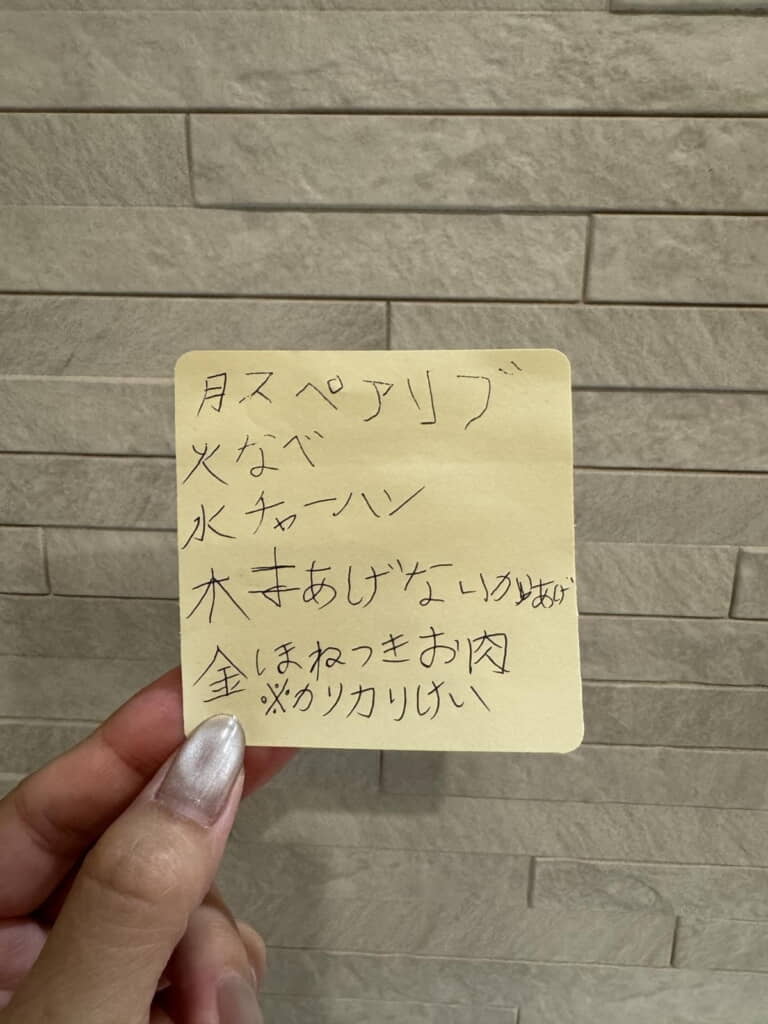 月スペアリブ
火なべ
水チャーハン
木まあげないからあげ
金ほねつきお肉
※カリカリけい